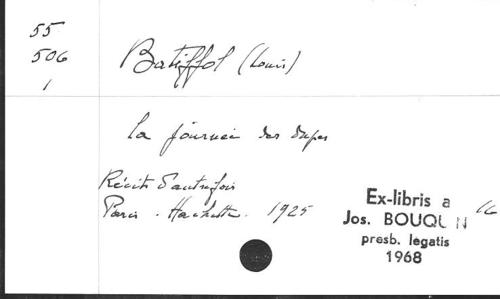 55
506
1
Batiffol (Louis)
La journée des dupes
Récits d'autrefois
Paris. Hachette. 1925
16
Ex-libris a
Jos. BOUQUIN
presb. legatis
1968